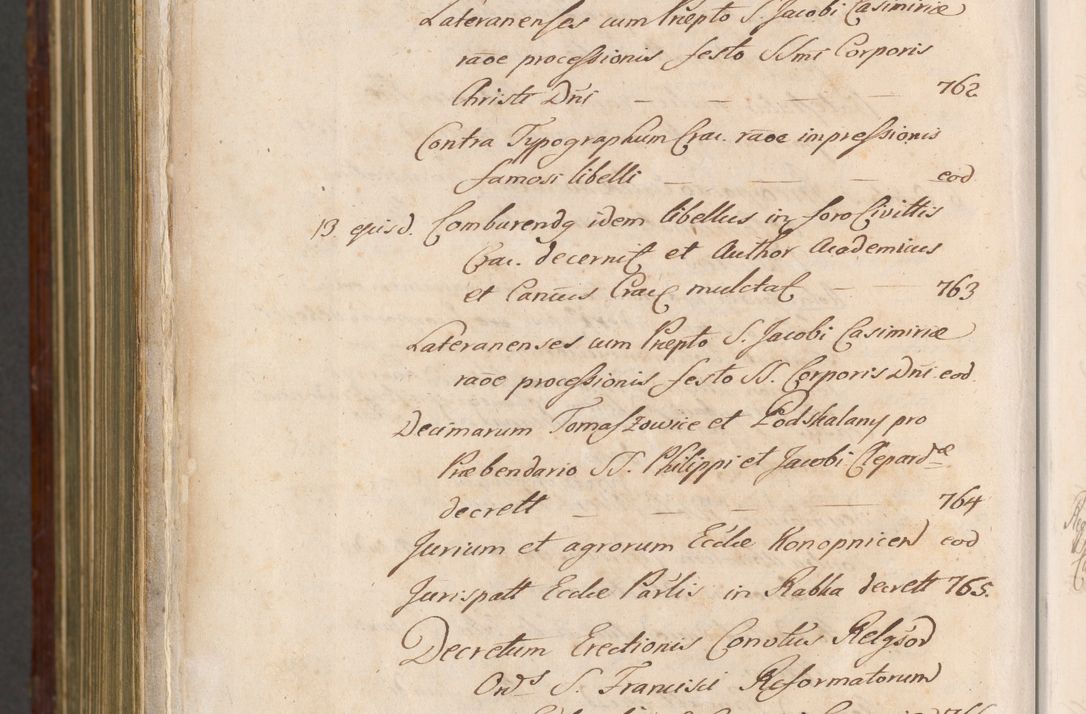 Lateranenses cum Prepto S. Jacobi Casimiriæ
raõe processionis festo SSmi Corporis
Christi Dñi — — — — 762
Contra Typographum Crac. raõe impressionis
famosi libelli — — — — eod
13 ejusd. Comburendg idem libellus in foro Civittis
Crac. decernit et Author Academicus
et Canũs Crac mulctat — — 763
Lateranenses cum Prepto S. Jacobi Casimiriæ
raõe processionis festo SS. Corporis Dñi eod
Decimarum Tomaszowice et Podskalany pro
Præbendario SS. Philippi et Jacobi Clepardæ
decrett — — — — 764
Jurium et agrorum Ecclæ Konopnicen eod
Jurispatt Ecclæ Parlis in Rabka decrett 765.
Decretum Erectionis Conotus Relgsor
Ords S. Francisci Reformatorum